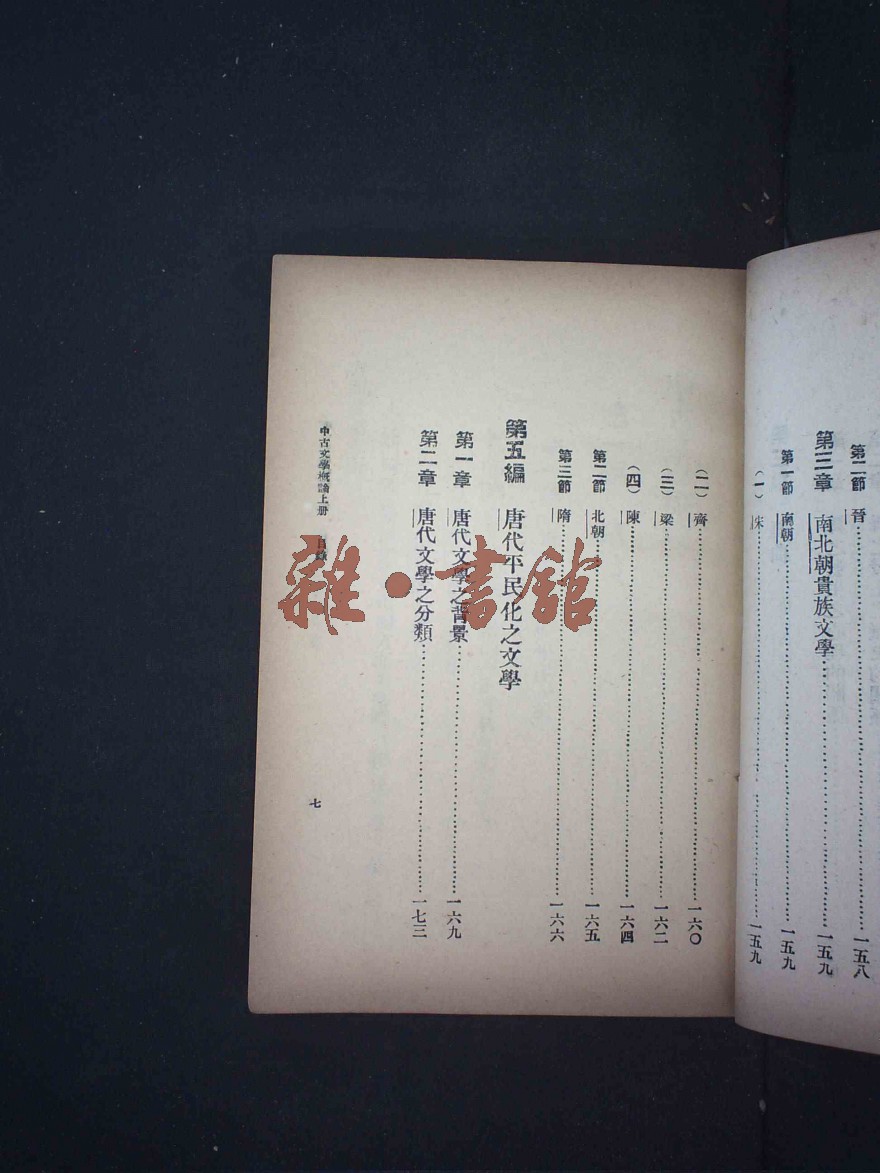 第二節 晉 一五八
第三章 南北朝貴族文學 一五九
第一節 南朝 一五九
(一) 宋 一五九
(二) 齊 一六〇
(三) 梁 一六二
(四) 陳 一六四
第二節 北朝 一六五
第三節 隋 一六六
第五編 唐代平民化之文學
第一章 唐代文學之背景 一六九
第二章 唐代文學之分類 一七三
中古文學概論上册 目錄 七
雜·書館